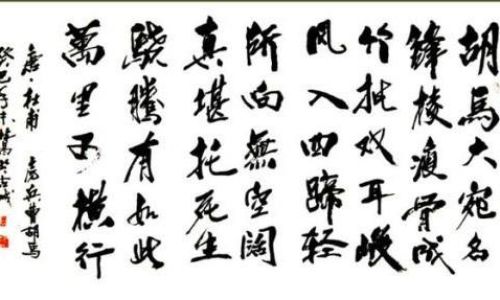 胡馬大宛名
鋒棱瘦骨成
竹批双耳峻
风入四蹄輕
所向無空闊
真堪托死生
驍騰有如此
萬里可横行
唐杜甫 房兵曹胡馬
癸巳年